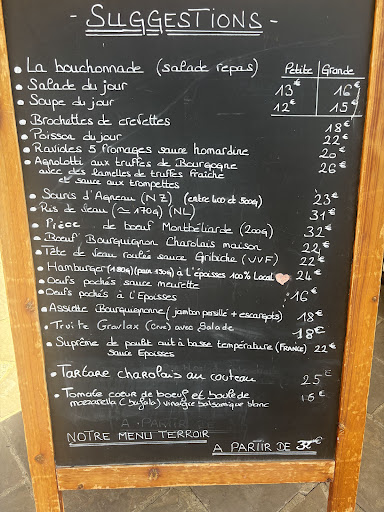 - SUGGESTIONS -
Petite | Grande
• La bouchonnade (salade repas)
• Salade du jour 13€ 16€
• Soupe du jour 12€ 15€
• Brochettes de crevettes 18€
• Poisson du jour 22€
• Ravioles 5 fromages sauce homardine 20€
• Agnolotti aux truffes de Bourgogne 26€
avec des lamelles de truffes fraîche
et sauce aux trompettes
• Souris d'Agneau (NZ) (entre 400 et 500g) 23€
• Ris de veau (≃ 170g) (NL) 31€
• Pièce de boeuf Montbéliarde (200g) 32€
• Boeuf Bourguignon Charolais maison 22€
• Tête de veau roulée sauce Gribiche (VVF) 22€
• Hamburger (180g) (pain 130g) à l'époisses 100% Local 24€
• Oeufs pochés sauce meurette
• Oeufs pochés à l'Epoisses 16€
• Assiette Bourguignonne (jambon persillé + escargots) 18€
• Truite Gravlax (Cive) avec Salade 18€
• Suprême de poulet cuit à basse température (FRANCE) 22€
sauce Epoisses
• Tartare charolais au couteau 25€
• Tomate coeur de boeuf et boule de 16€
mozzarella (bufala) vinaigre balsamique blanc
NOTRE MENU TERROIR
A PARTIR DE €